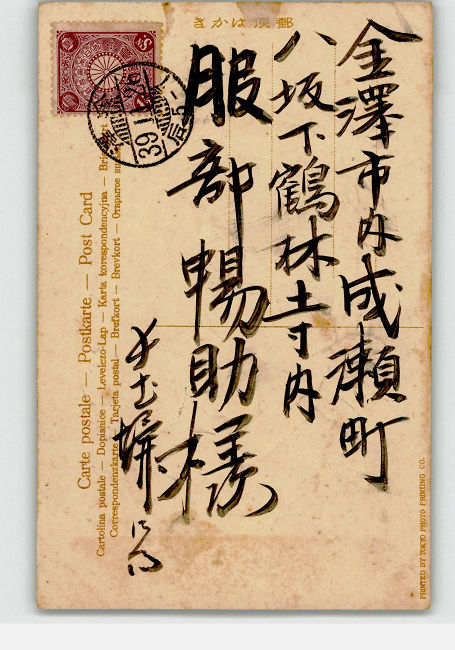 郵便はかき
金澤市内成瀬町
八坂下鶴林寺内
服部暢助様
39
Carte postale — Postkarte — Post Card
Cartolina postale — Dopisnice — Levelezö-Lap — Karta korespondencyjna —
Correspondenzkarte — Tarjeta postal — Brefkort — Brevkort — Открытое
PRINTED BY TOKYO PHOTO PRINTING CO.